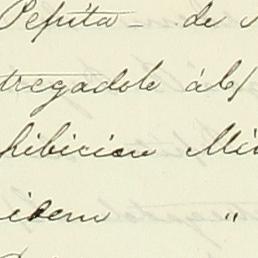 Pepita - de
tregadole ál
hibicion Mi
idem "